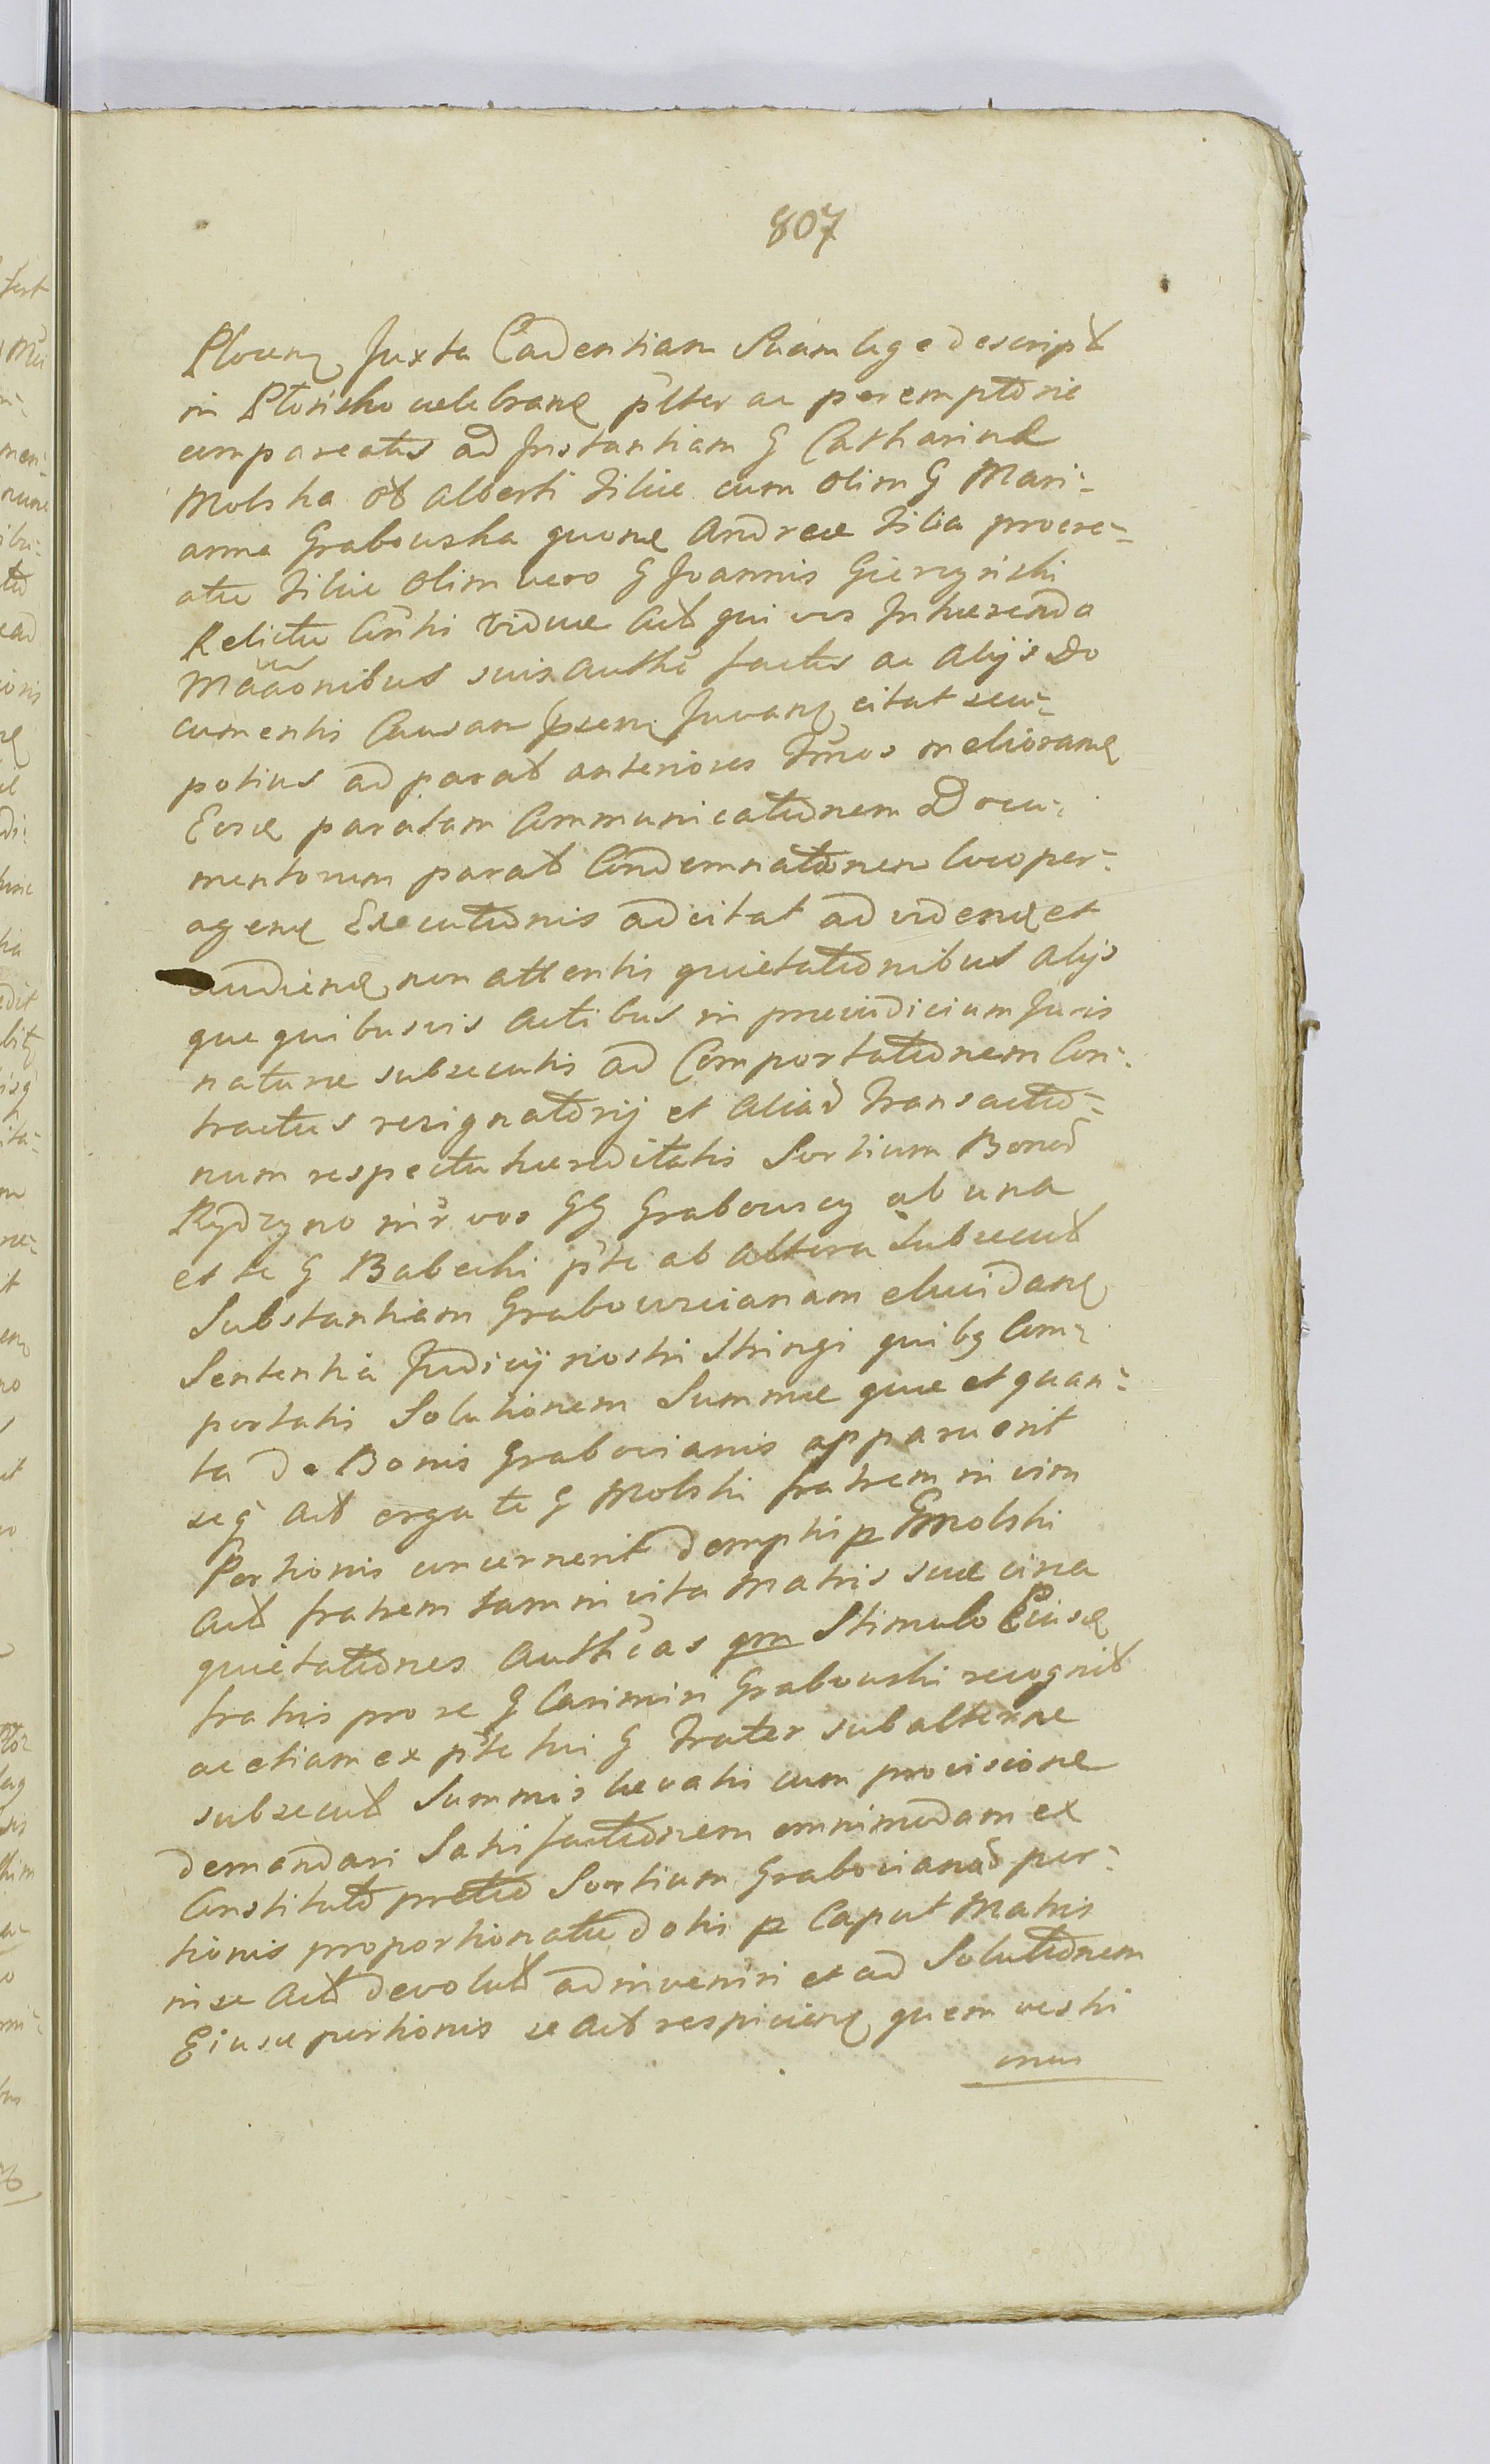 807
Plocen Juxta Cadentiam Suam lege descript
in Plonsko celebran plter ac peremptorie
compareatis ad Instantiam G Catharinae
Molska olt Alberti Filiae cum olim G Mari-
anna Grabowska quond Andreae Filia procre-
atae Filiae olim vero G Joannis Gierczynski
Relictae Conthi Viduae Act qui vos Inhaerendo
Mãaõnibus suis Authẽ factis ac Alijs Do
cumentis Causam psem Juvan citat seu-
potius ad parat anteriores Tmos melioran
Eosd paratam Communicationem Docu-
mentorum parat Condemnationem loco per-
agend Executionis adcitat ad vidend et
audiend non attentis quietationibus Alijs
que quibusvis Actibus in praeiudicium Juris
naturae subsecutis ad Comportationem Con-
tractus resignatorij et aliar Transactio-
num respectu haereditatis Sortium Bonor
Rydzyno intr vos GG Grabowscy ab una
et te G Babecki pte ab altera Subsecut
Substantiam Grabowscianam elucidand
Sententia Judicij nostri Stringi quibg Com-
portatis Solutionem Summae quae et quan-
ta de Bonis Grabovianis apparuerit
seq Act erga te G Molski fratrem in vim
Portionis concernerit demptis p Gmolski
Act fratrem tam in vita Matris suae circa
quietationes Authẽas qm Stimulo Eiusd
fratris pro se G Casimiri Grabowski recognit
ac etiam ex pte tui G Frater subalternae
subsecut Summis levatis cum provisione
demandari Satisfactionem omnimodam ex
Constituto pretio Sortium Grabovianar por-
tionis proportionatae dotis p Caput Matris
in se Act devolut adinveniri et ad Solutionem
Eiusd portionis se Act respiciend quem vestri
onus